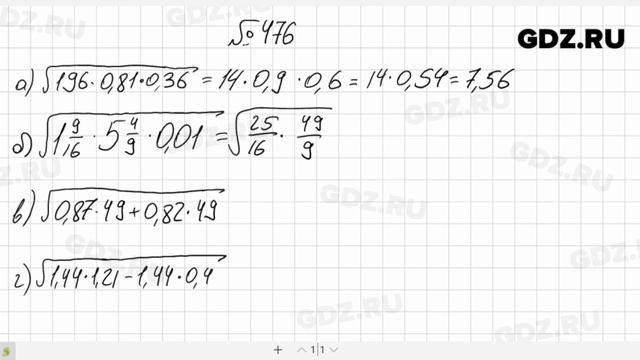 № 476
GDZ.RU
а) √196·0,81·0,36 = 14·0,9·0,6 = 14·0,54 = 7,56
б) √1 9/16 · 5 4/9 · 0,01 = √25/16 · 49/9
в) √0,87·49+0,82·49
г) √1,44·1,21-1,44·0,4
GDZ.RU
GDZ.RU
GDZ.RU
GDZ.RU
GDZ.RU
1|1